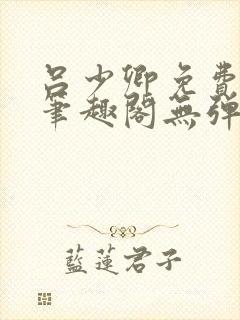 呂少卿免費
筆趣閣無彈
藍蓮君子